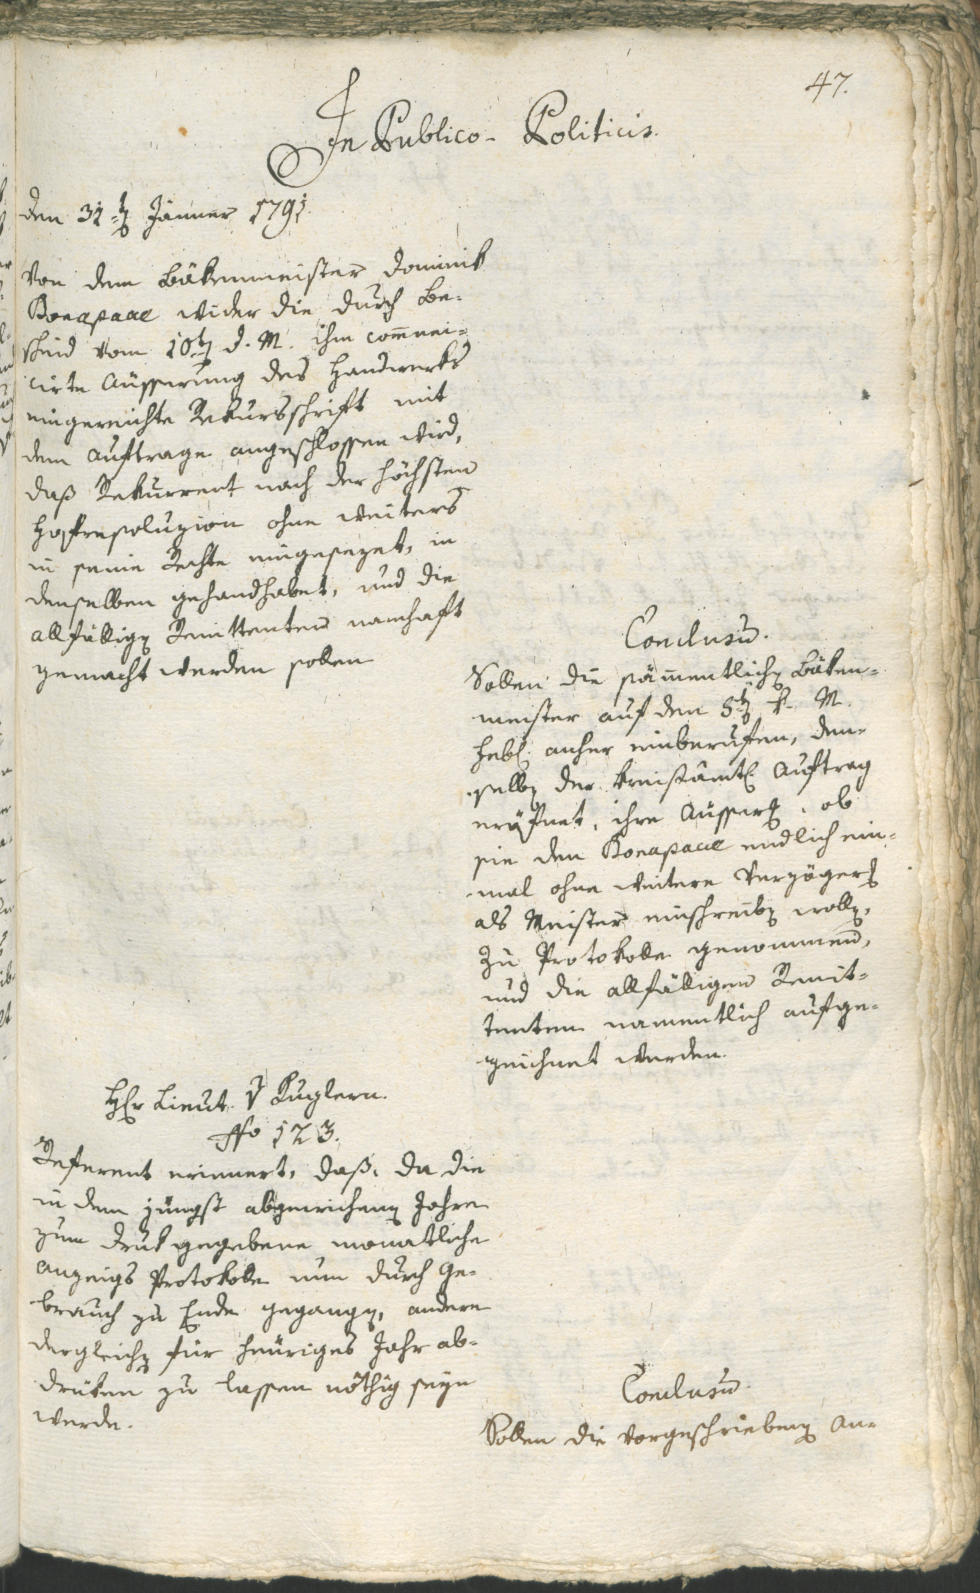 47.
In Publico-Politicis.
den 31ten Jänner 1791.
Von dem Bäkenmeister Dominik
Bonapace wider die durch Be-
scheid vom 10ten d. M. ihm com̅uni-
cirte Äusserung des Handwerks
eingereichte Rekursschrift mit
dem Auftrage angeschlossen wird,
daß Rekurrent nach der höchsten
Hofresoluzion ohne weiters
in seine Rechte eingesezet, in
denselben gehandhabet, und die
allfälligen Renittenten namhaft
gemacht werden sollen
Conclusum.
Sollen die säm̅entlichen Bäken-
meister auf den 5ten k. M.
anher einberufen, den-
selben der kreisämtl. Auftrag
eröfnet, ihre Äusserung, ob
sie den Bonapace endlich ein-
mal ohne weitere Verzögerung
als Meister einschreiben wollen,
zu Protokoll genommen,
und die allfälligen Renit-
tenten namentlich aufge-
zeichnet werden.
Hr Lieut. v Kuglern.
Nro 123.
Referent erinnert, daß, da die
in dem jüngst abgewichenen Jahre
zum Druk gegebene monatliche
Anzeigs Protokolle nun durch Ge-
brauch zu Ende gegangen, andere
dergleichen für heuriges Jahr ab-
druken zu lassen nöthig seyn
werde.
Conclusum.
Sollen die vorgeschriebenen An-